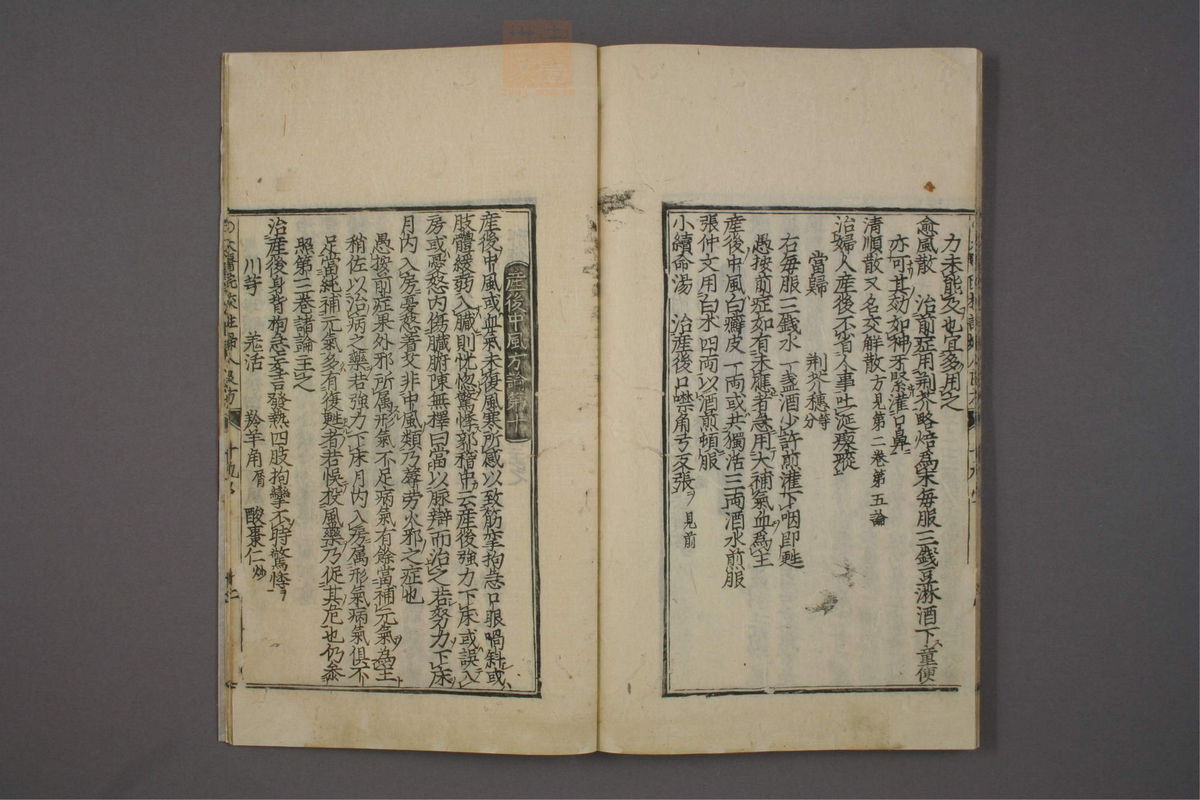 力未能及也宜多用之
愈風散 治前症用荆芥略焙爲末毎服三錢豆淋酒下童便
亦可其効如神牙緊灌口鼻
清順散又名交觧散方見第二巻第五論
治婦人産後不省人事吐涎瘈瘲
當歸 荆芥穗等分
右毎服三錢水一盞酒少許煎灌下咽即甦
愚按前症如有未應者急用大補氣血爲主
産後中風白癬皮一両或共獨活三両酒水煎服
張仲文用白术四両以酒煎頓服
小續命湯 治産後口噤角弓反張見前
産後中風方論第十
産後中風或血氣未復風寒所感以致筋攣拘急口眼喎斜或
肢體緩弱入臓則恍惚驚悸郭稽中云産後強力下床或誤入
房或憂愁内傷臓腑陳無擇曰當以脈辯而治之若努力下床
月内入房憂愁著艾非中風類乃蓐労火邪之症也
愚按前症果外邪所属形氣不足病氣有餘當補元氣爲主
稍佐以治病之藥若強力下床月内入房属形氣病氣倶不
足當純補元氣多有復甦者若悞投風藥乃促其危也仍叅
照第三巻諸論主之
治産後身背拘急至舌發熱四肢拘攣不時驚悸
川芎 羌活 羚羊角屑 酸棗仁炒
太醫院校註婦人良方